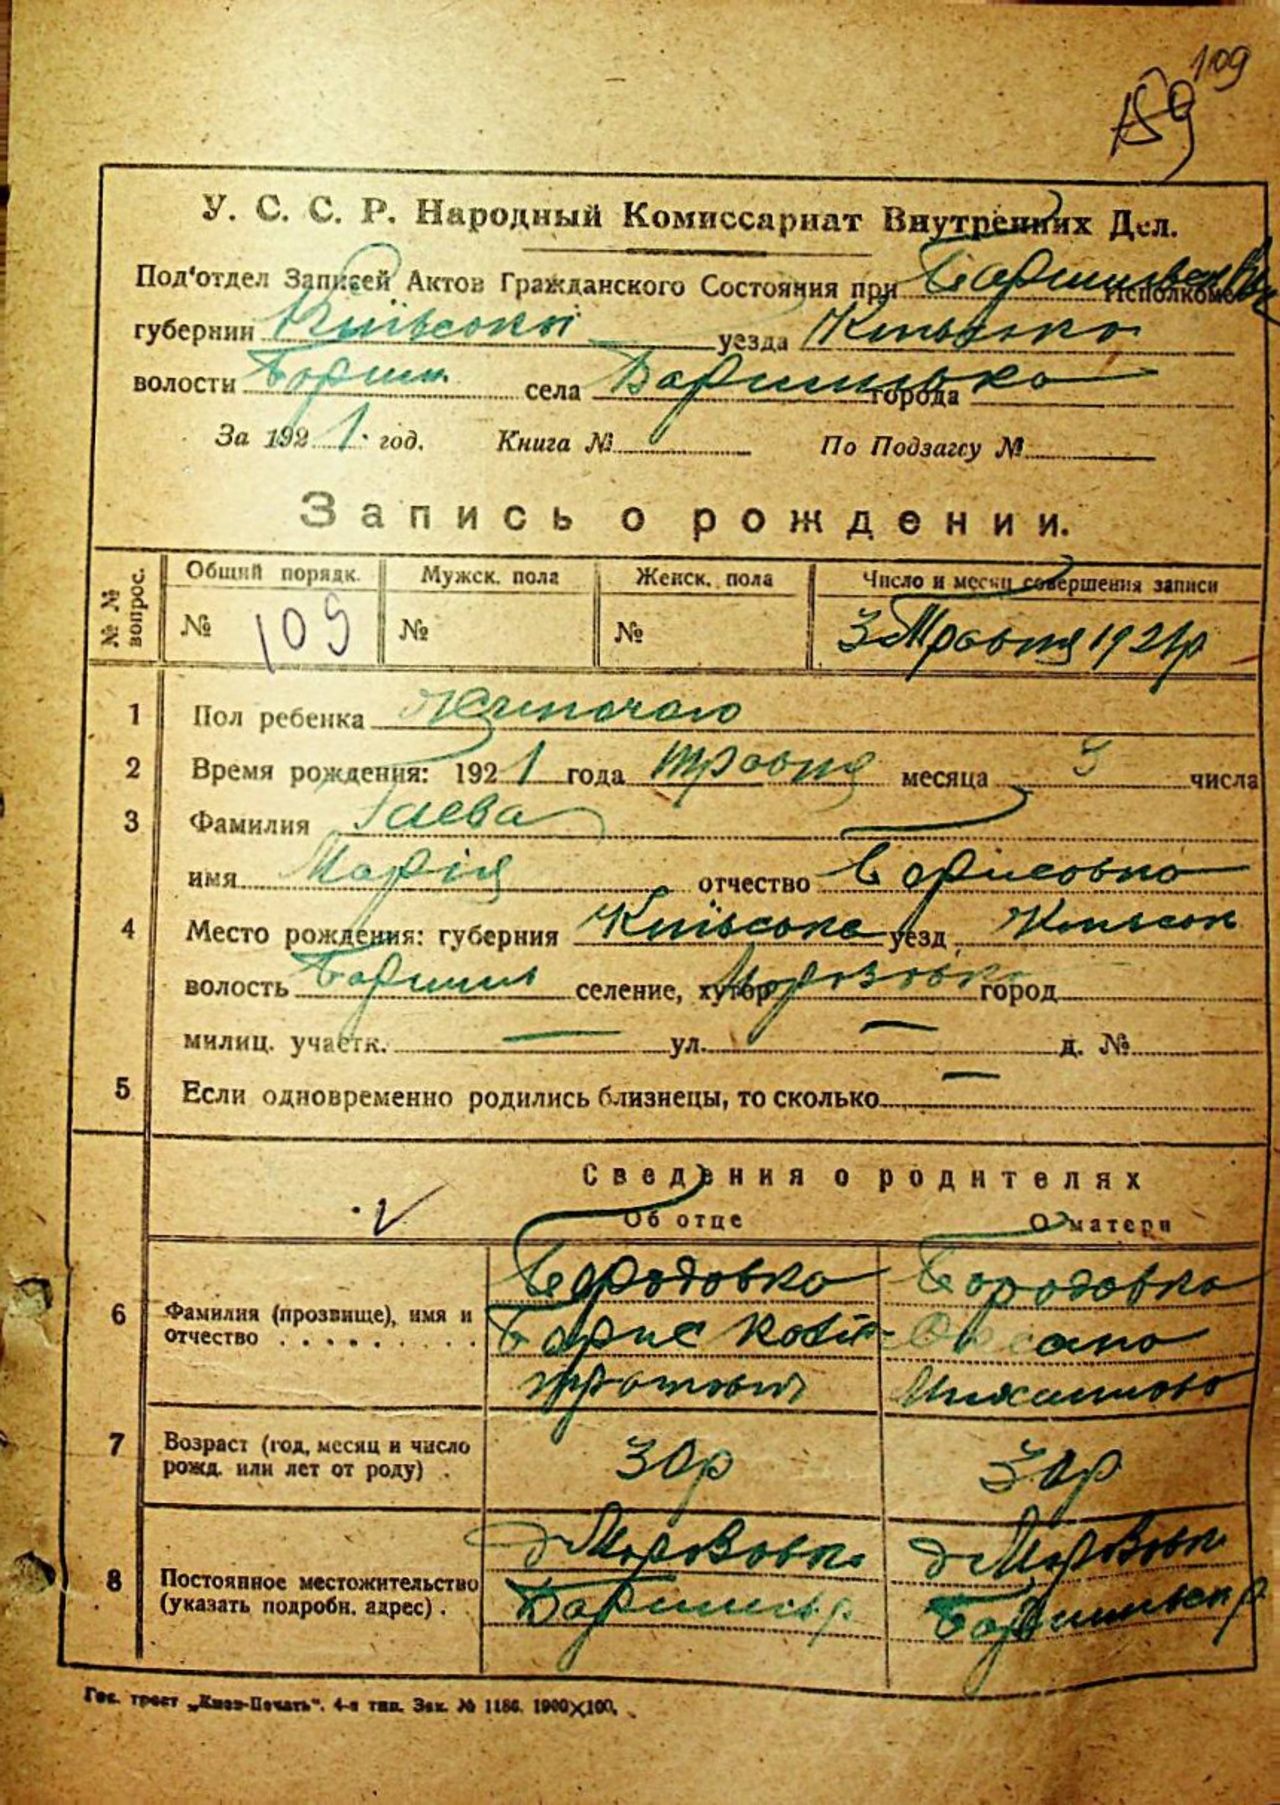 109
159
У. С. С. Р. Народный Комиссариат Внутренних Дел.
Под'отдел Записей Актов Гражданского Состояния при Исполкоме
губернии Київської уезда
волости Бориш. села города
За 1921 год. Книга № По Подзагсу №
Запись о рождении.
№ № вопрос. Общий порядк. Мужск. пола Женск. пола Число и месяц совершения записи
№ 109 № № 3 Травня 1921 р
1 Пол ребенка Жиночого
2 Время рождения: 1921 года травня месяца 3 числа
3 Фамилия Гаева
имя Марія отчество Борисовна
4 Место рождения: губерния Київська уезд
волость Боришп селение, хутор Морозовка город
милиц. участк. — ул. — д. №
5 Если одновременно родились близнецы, то сколько —
Сведения о родителях
Об отце О матери
6 Фамилия (прозвище), имя и отчество . . . . . . . . .
Бородовка Бородовка
Борис Оксана
7 Возраст (год, месяц и число рожд. или лет от роду) .
30 р 30 р
8 Постоянное местожительство (указать подробн. адрес) .
д Морозовка д Морозовка
Гос. трест „Киев-Печать". 4-я тип. Зак. № 1186. 1900×100.